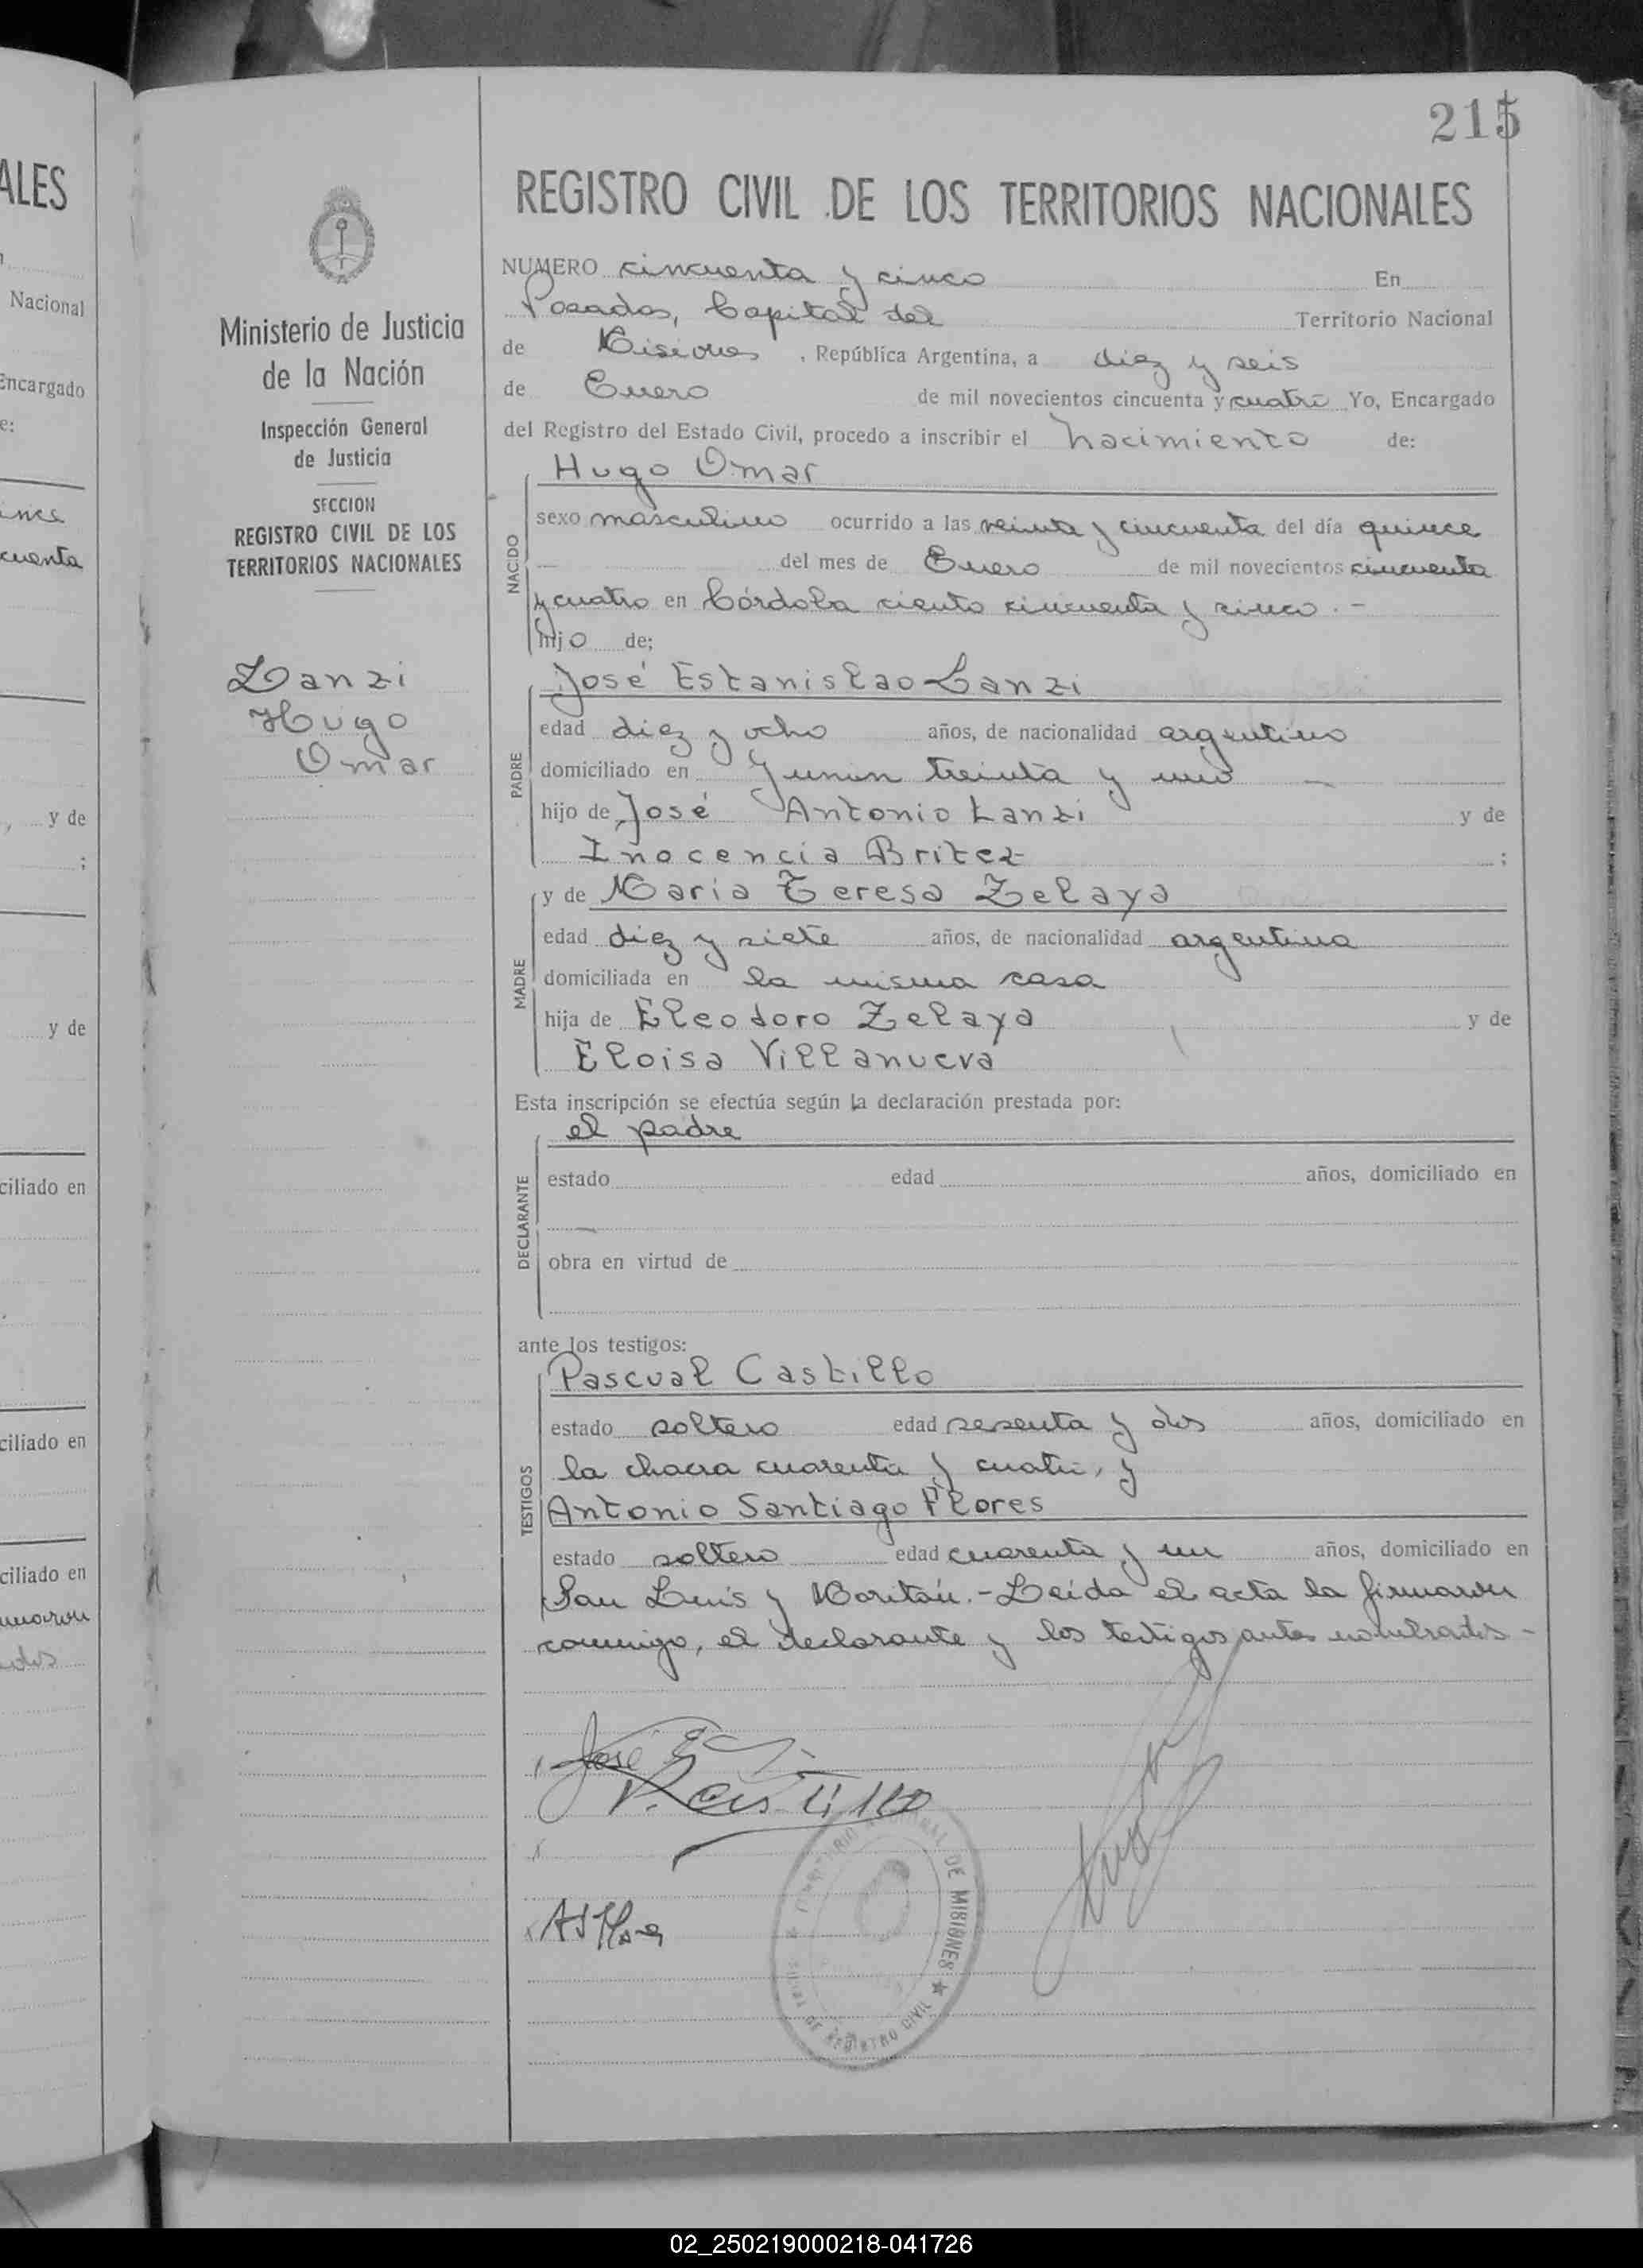 215
REGISTRO CIVIL DE LOS TERRITORIOS NACIONALES
Ministerio de Justicia
de la Nación
Inspección General
de Justicia
SECCION
REGISTRO CIVIL DE LOS
TERRITORIOS NACIONALES
Lanzi
Hugo
Omar
NUMERO cincuenta y cinco En
Posadas, Capital del Territorio Nacional
de Misiones, República Argentina, a diez y seis
de Enero de mil novecientos cincuenta y cuatro Yo, Encargado
del Registro del Estado Civil, procedo a inscribir el nacimiento de:
NACIDO
Hugo Omar
sexo masculino ocurrido a las veinte y cincuenta del día quince
del mes de Enero de mil novecientos cincuenta
y cuatro en Córdoba ciento cincuenta y cinco.-
hijo de;
PADRE
José Estanislao Lanzi
edad diez y ocho años, de nacionalidad argentino
domiciliado en Junin treinta y uno
hijo de José Antonio Lanzi y de
Inocencia Britez ;
MADRE
y de Maria Teresa Zelaya
edad diez y siete años, de nacionalidad argentina
domiciliada en la misma casa
hija de Eleodoro Zelaya y de
Eloisa Villanueva
Esta inscripción se efectúa según la declaración prestada por:
DECLARANTE
el padre
estado edad años, domiciliado en
obra en virtud de
ante los testigos:
TESTIGOS
Pascual Castillo
estado soltero edad sesenta y dos años, domiciliado en
la chacra cuarenta y cuatro, y
Antonio Santiago Flores
estado soltero edad cuarenta y un años, domiciliado en
San Luis y Moritán.-Leída el acta la firmaron
conmigo, el declarante y los testigos antes nombrados-
José
P. Castillo
AS Flores
DE MISIONES
DE REGISTRO CIVIL
ALES
Nacional
Encargado
e:
cuenta
y de
;
y de
ciliado en
ciliado en
ciliado en
02_250219000218-041726